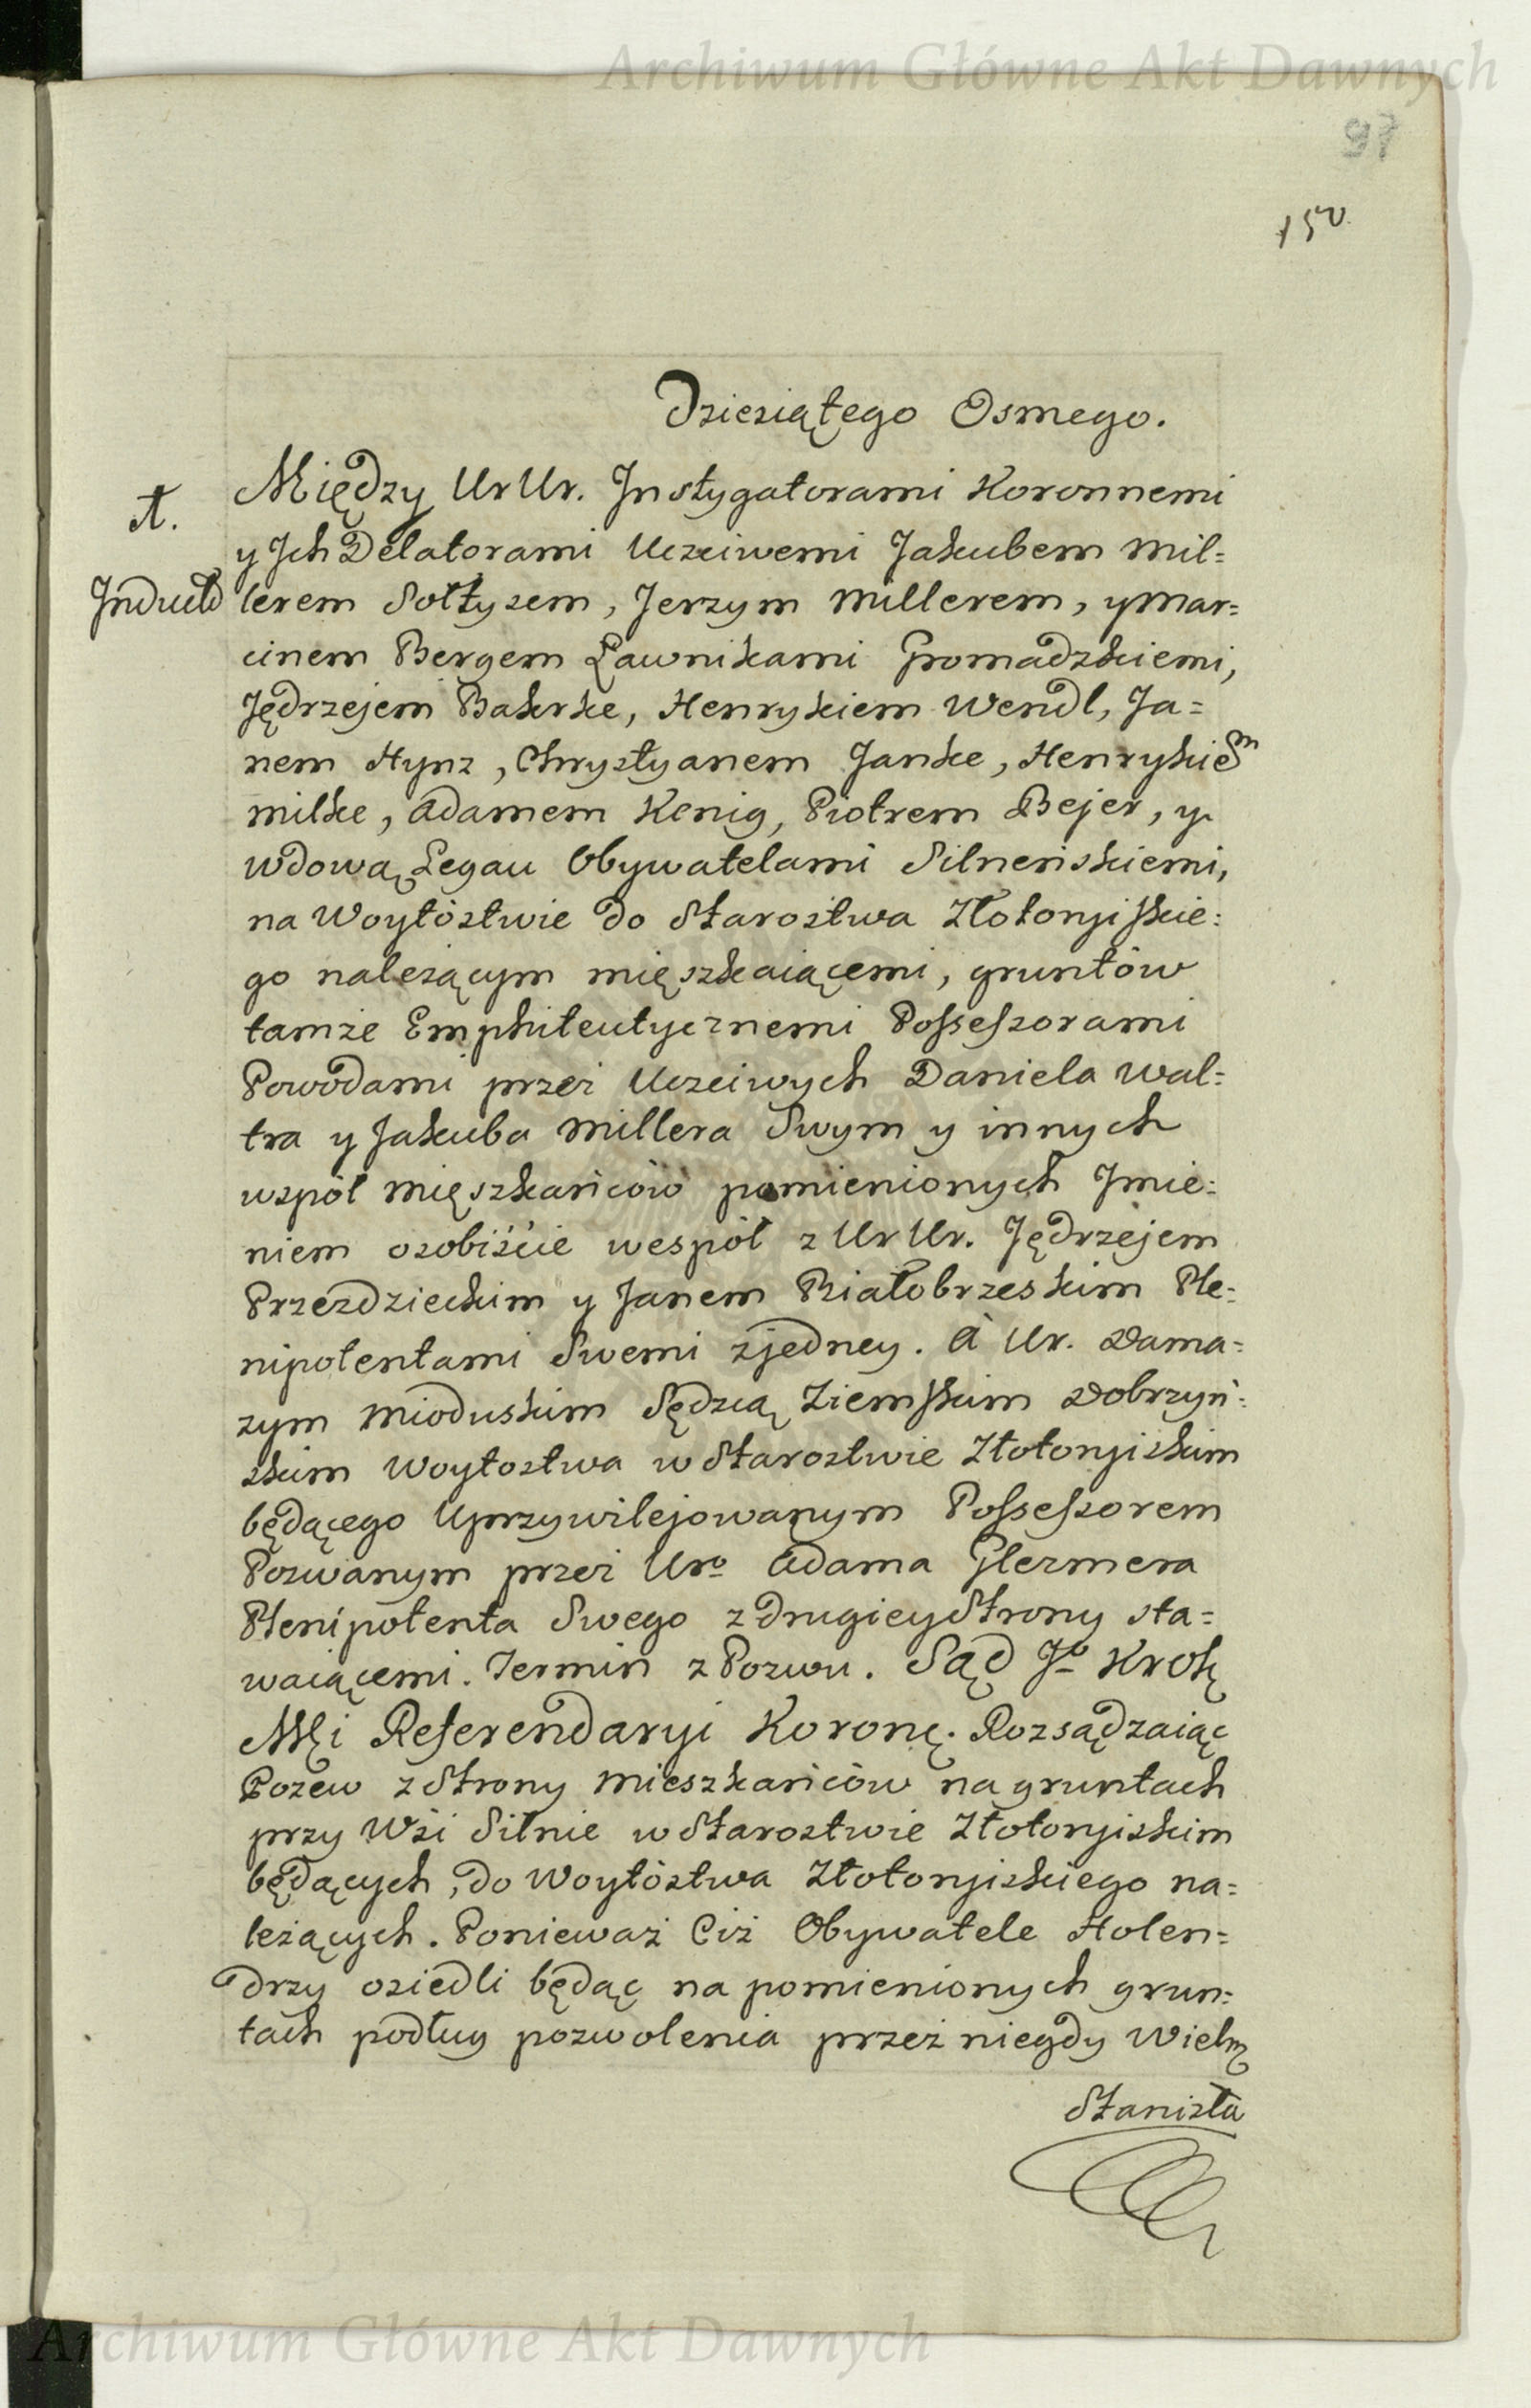 Archiwum Główne Akt Dawnych
97
150.
Dziesiątego Osmego.
Między Ur Ur. Instygatorami Koronnemi
A.
y Jch Delatorami Uczciwemi Jakubem Mil=
Indult
lerem Sołtysem, Jerzym Millerem, y Mar=
cinem Bergem Ławnikami Gromadzkiemi,
Jędrzejem Bakrke, Henrykiem Wendl, Ja=
nem Hynz, Chrystyanem Janke, Henrykiem
Milke, Adamem Kenig, Piotrem Bejer, y
Wdową Legau Obywatelami Silneńskiemi,
na Woytóstwie do Starostwa Złotoryiskie=
go należącym mięszkaiącemi, gruntów
tamże Emphiteutycznemi Possessorami
Powodami przez Uczciwych Daniela Wal=
tra y Jakuba Millera Swym y innych
wspól mięszkańców pomienionych Jmie=
niem osobiście wespół z Ur Ur. Jędrzejem
Przezdzieckim y Janem Białobrzeskim Ple=
nipotentami Swemi z jedney. A Ur. Dama=
zym Mioduskim Sędzią Ziemskim Dobrzyń=
skim Woytostwa w Starostwie Złotoryiskim
będącego Uprzywilejowanym Possessorem
Pozwanym przez Uro Adama Glezmera
Plenipotenta Swego z drugiey Strony sta=
waiącemi. Termin z Pozwu. Sąd Jo Krol
Mi Referendaryi Koron. Rozsądzaiąc
Pozew z Strony Mieszkańców na gruntach
przy Wsi Silnie w Starostwie Złotoryiskim
będących, do Woytóstwa Złotoryiskiego na=
leżących. Ponieważ Ciż Obywatele Holen=
drzy osiedli będąc na pomienionych grun=
tach podług pozwolenia przez niegdy Wielm
Stanisła
Archiwum Główne Akt Dawnych